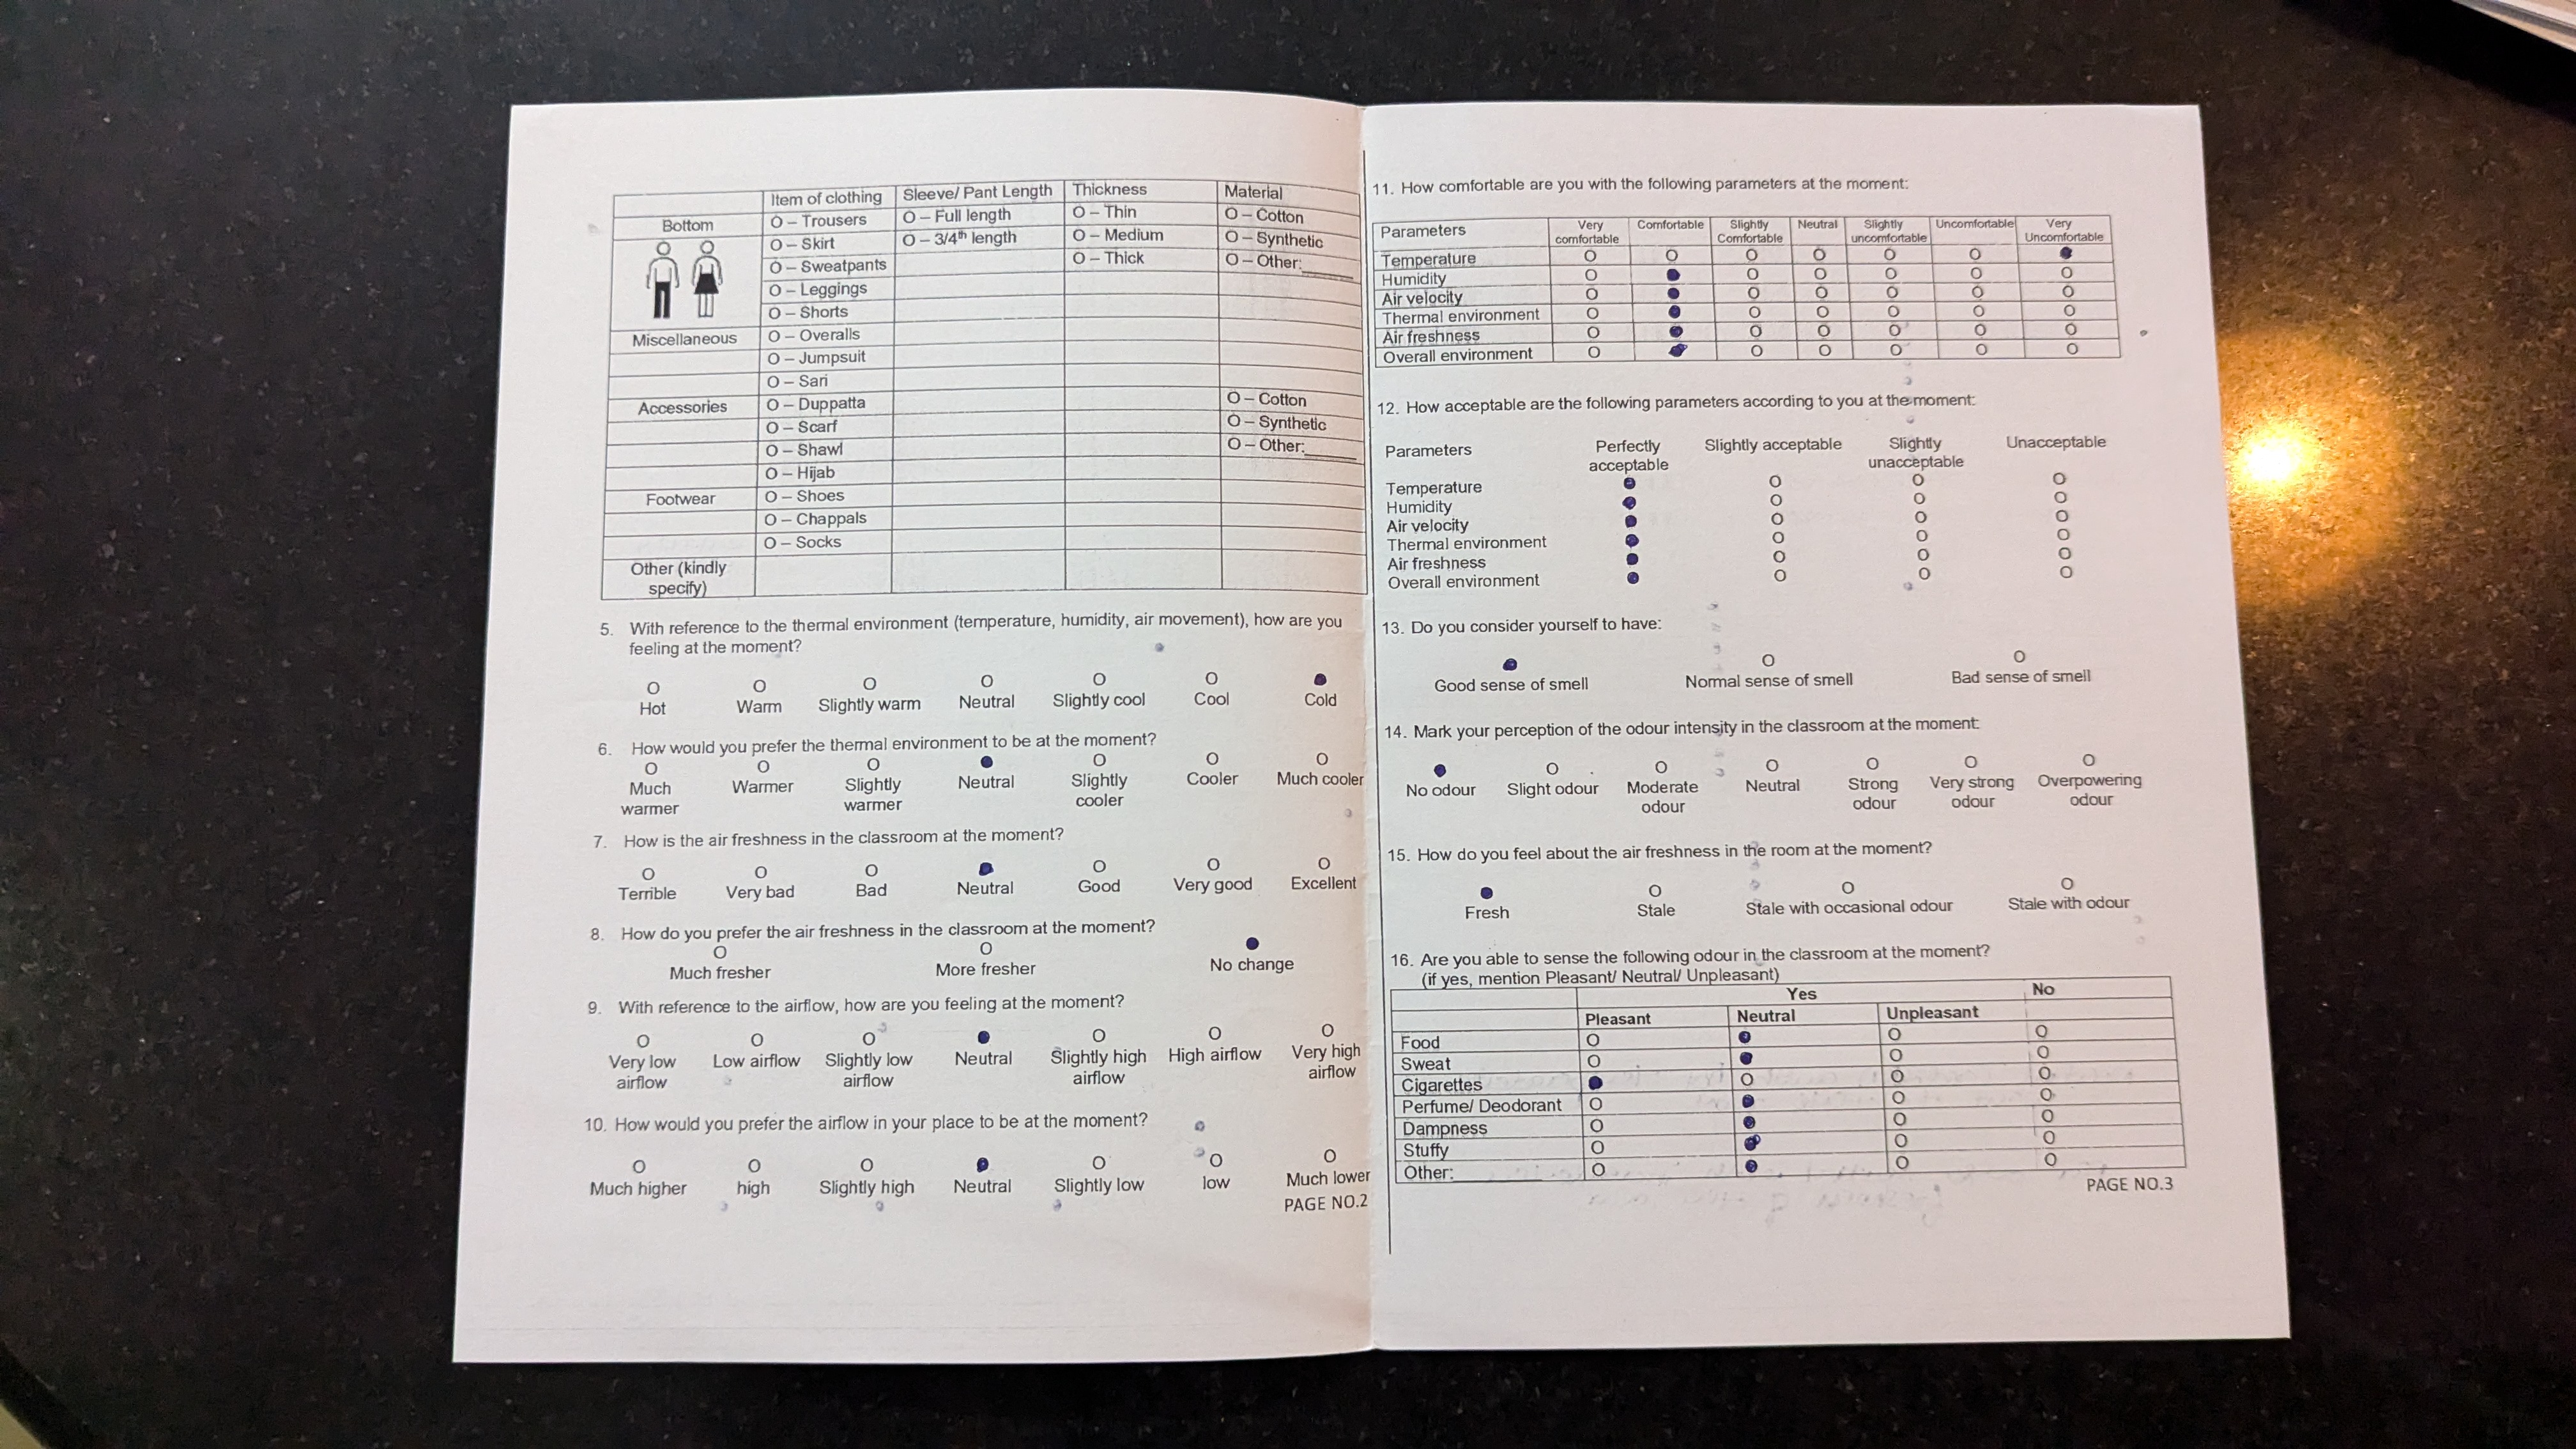 Item of clothing Sleeve/ Pant Length Thickness Material
Bottom O – Trousers O – Full length O – Thin O – Cotton
O – Skirt O – 3/4th length O – Medium O – Synthetic
O – Sweatpants O – Thick O – Other:______
O – Leggings
O – Shorts
Miscellaneous O – Overalls
O – Jumpsuit
O – Sari
Accessories O – Duppatta O – Cotton
O – Scarf O – Synthetic
O – Shawl O – Other:______
O – Hijab
Footwear O – Shoes
O – Chappals
O – Socks
Other (kindly
specify)
5. With reference to the thermal environment (temperature, humidity, air movement), how are you
feeling at the moment?
O O O O O O
Hot Warm Slightly warm Neutral Slightly cool Cool Cold
6. How would you prefer the thermal environment to be at the moment?
O O O O O O
Much Warmer Slightly Neutral Slightly Cooler Much cooler
warmer warmer cooler
7. How is the air freshness in the classroom at the moment?
O O O O O O
Terrible Very bad Bad Neutral Good Very good Excellent
8. How do you prefer the air freshness in the classroom at the moment?
O O
Much fresher More fresher No change
9. With reference to the airflow, how are you feeling at the moment?
O O O O O O
Very low Low airflow Slightly low Neutral Slightly high High airflow Very high
airflow airflow airflow airflow
10. How would you prefer the airflow in your place to be at the moment?
O O O O O O
Much higher high Slightly high Neutral Slightly low low Much lower
PAGE NO.2
11. How comfortable are you with the following parameters at the moment:
Parameters Very Comfortable Slightly Neutral Slightly Uncomfortable Very
comfortable Comfortable uncomfortable Uncomfortable
Temperature O O O O O O
Humidity O O O O O O
Air velocity O O O O O O
Thermal environment O O O O O O
Air freshness O O O O O O
Overall environment O O O O O O
12. How acceptable are the following parameters according to you at the moment:
Parameters Perfectly Slightly acceptable Slightly Unacceptable
acceptable unacceptable
Temperature O O O
Humidity O O O
Air velocity O O O
Thermal environment O O O
Air freshness O O O
Overall environment O O O
13. Do you consider yourself to have:
O O
Good sense of smell Normal sense of smell Bad sense of smell
14. Mark your perception of the odour intensity in the classroom at the moment:
O O O O O O
No odour Slight odour Moderate Neutral Strong Very strong Overpowering
odour odour odour odour
15. How do you feel about the air freshness in the room at the moment?
O O O
Fresh Stale Stale with occasional odour Stale with odour
16. Are you able to sense the following odour in the classroom at the moment?
(if yes, mention Pleasant/ Neutral/ Unpleasant)
Yes No
Pleasant Neutral Unpleasant
Food O O O
Sweat O O O
Cigarettes O O O
Perfume/ Deodorant O O O
Dampness O O O
Stuffy O O O
Other:__________ O O O
PAGE NO.3